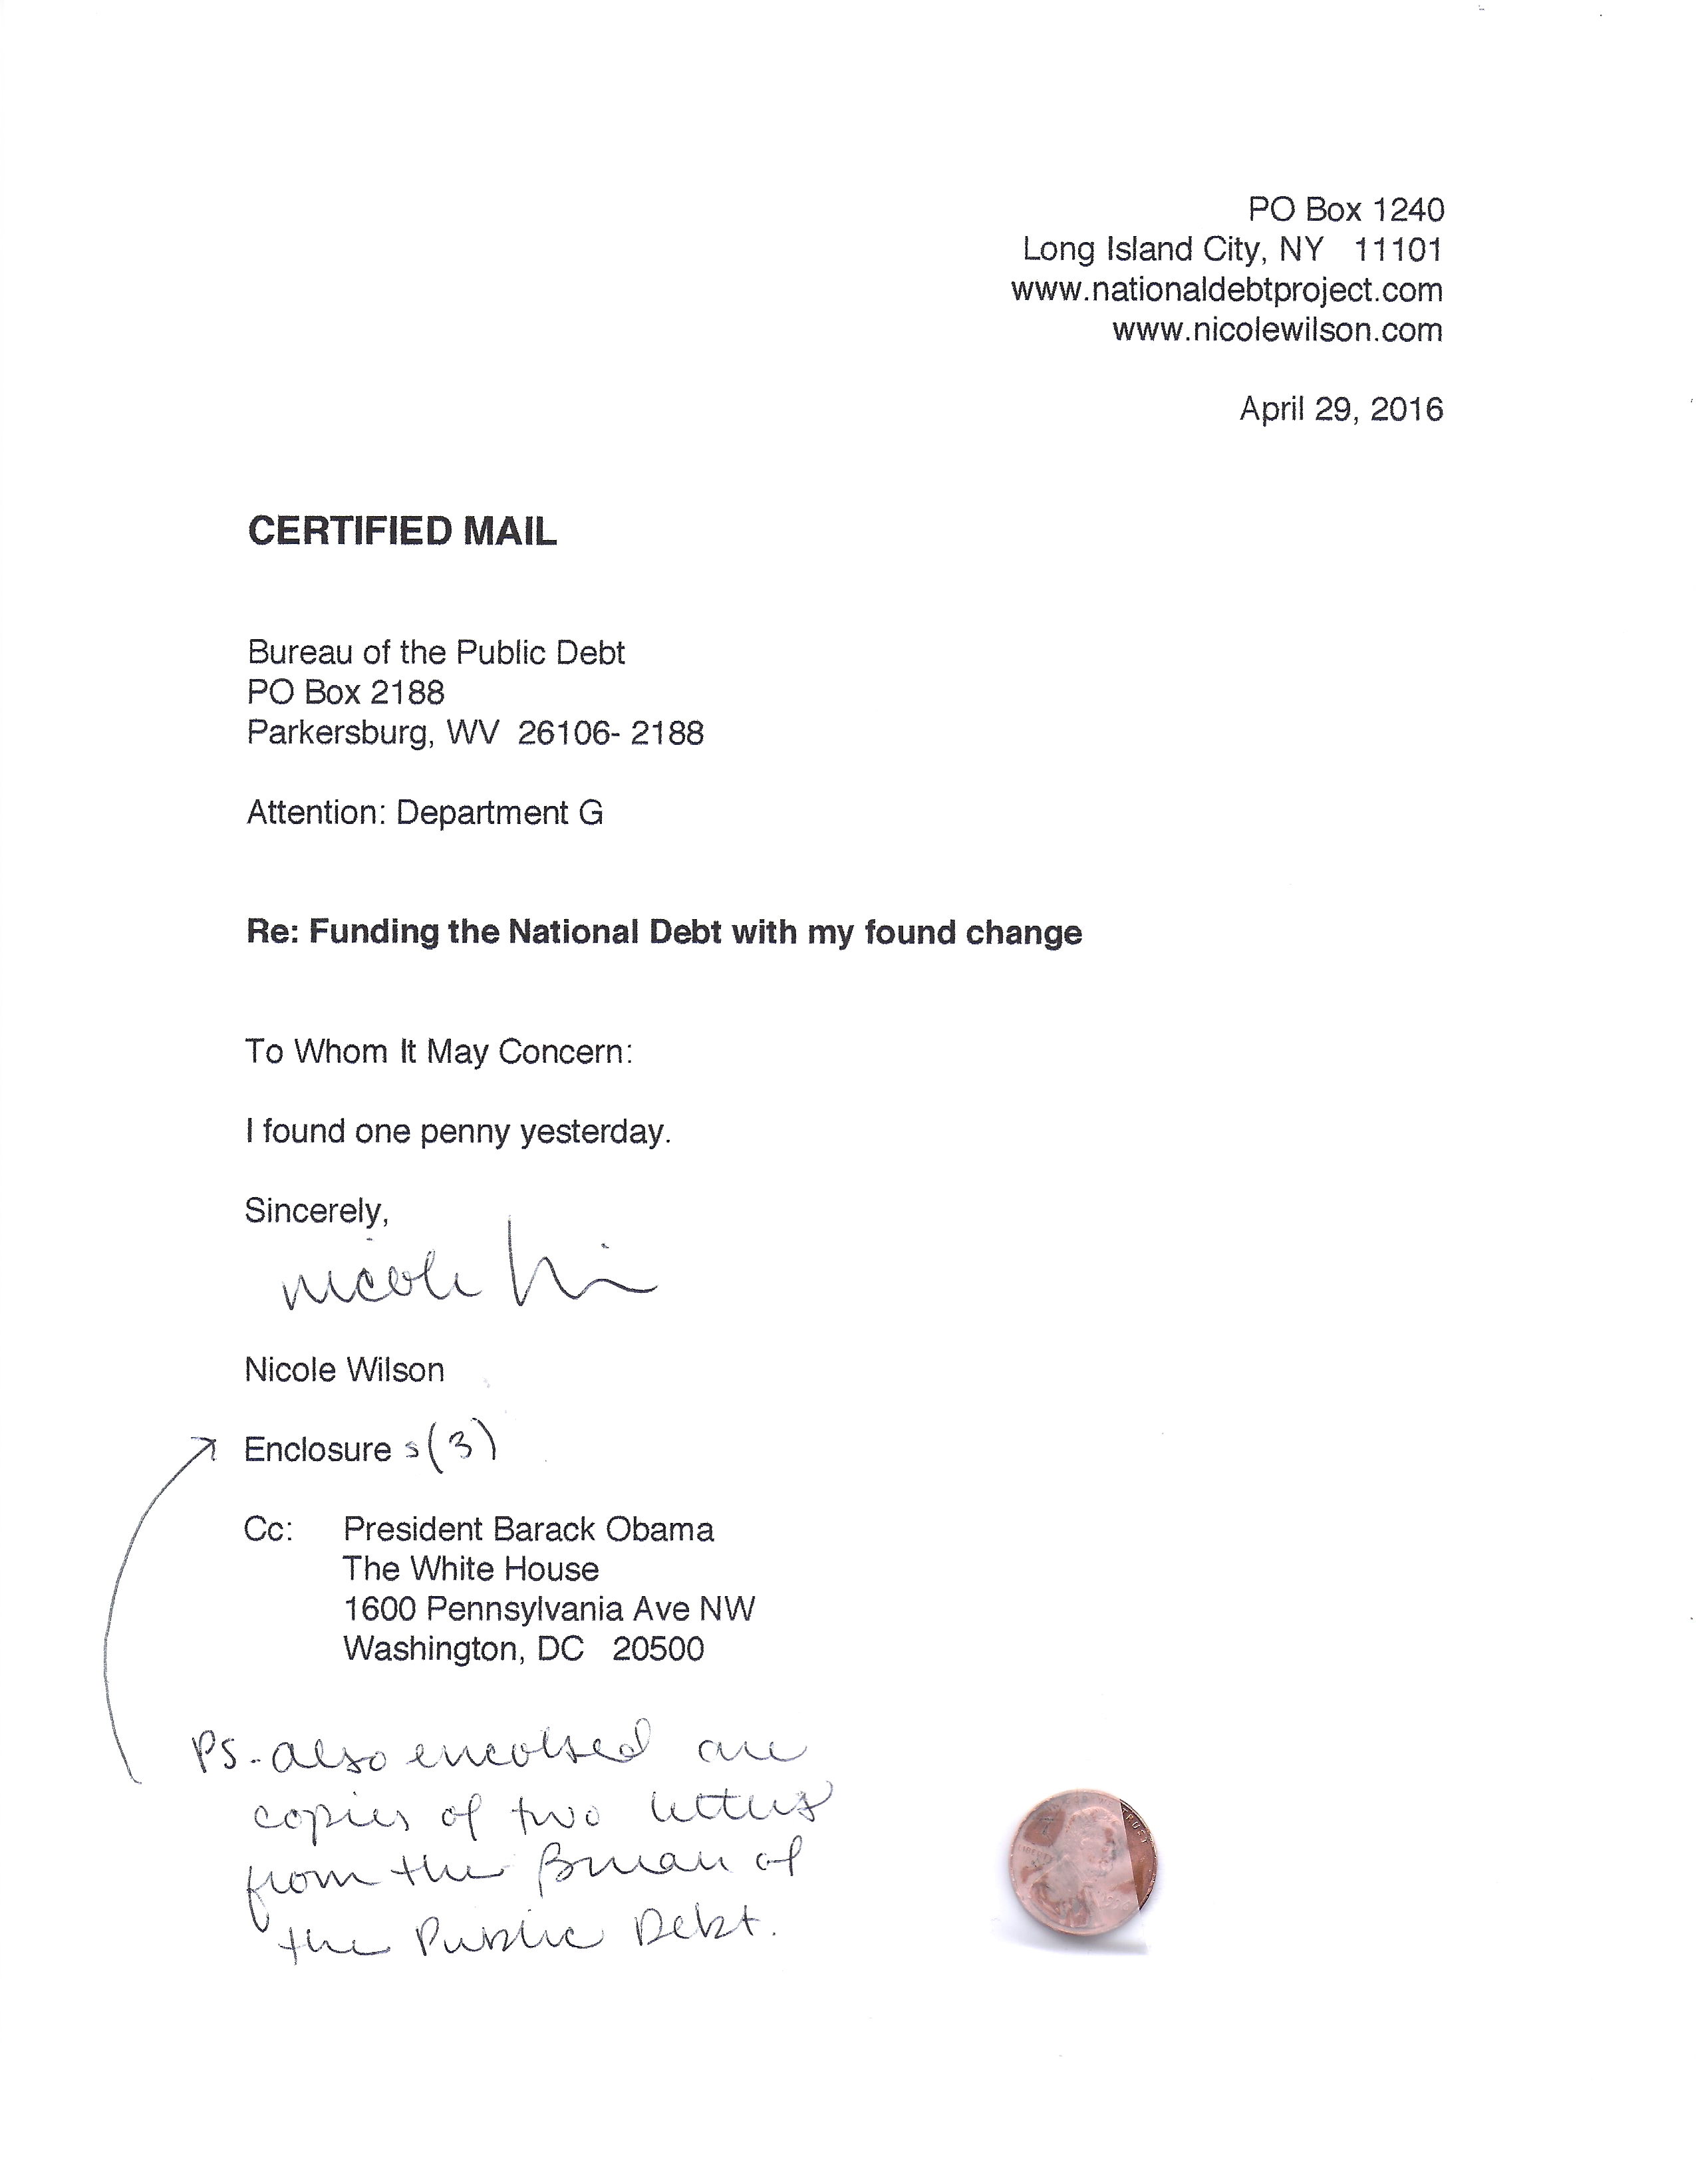 PO Box 1240
Long Island City, NY 11101
www.nationaldebtproject.com
www.nicolewilson.com
April 29, 2016
CERTIFIED MAIL
Bureau of the Public Debt
PO Box 2188
Parkersburg, WV 26106- 2188
Attention: Department G
Re: Funding the National Debt with my found change
To Whom It May Concern:
I found one penny yesterday.
Sincerely,
Nicole
Nicole Wilson
Enclosure s(3)
Cc: President Barack Obama
The White House
1600 Pennsylvania Ave NW
Washington, DC 20500
PS. also encolsed are
copies of two letters
from the Bureau of
the Public Debt.